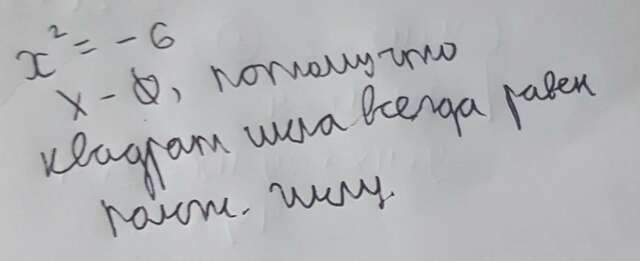 x² = -6
x - ∅, потомучто
квадрат числа всегда равен
полож. числу.